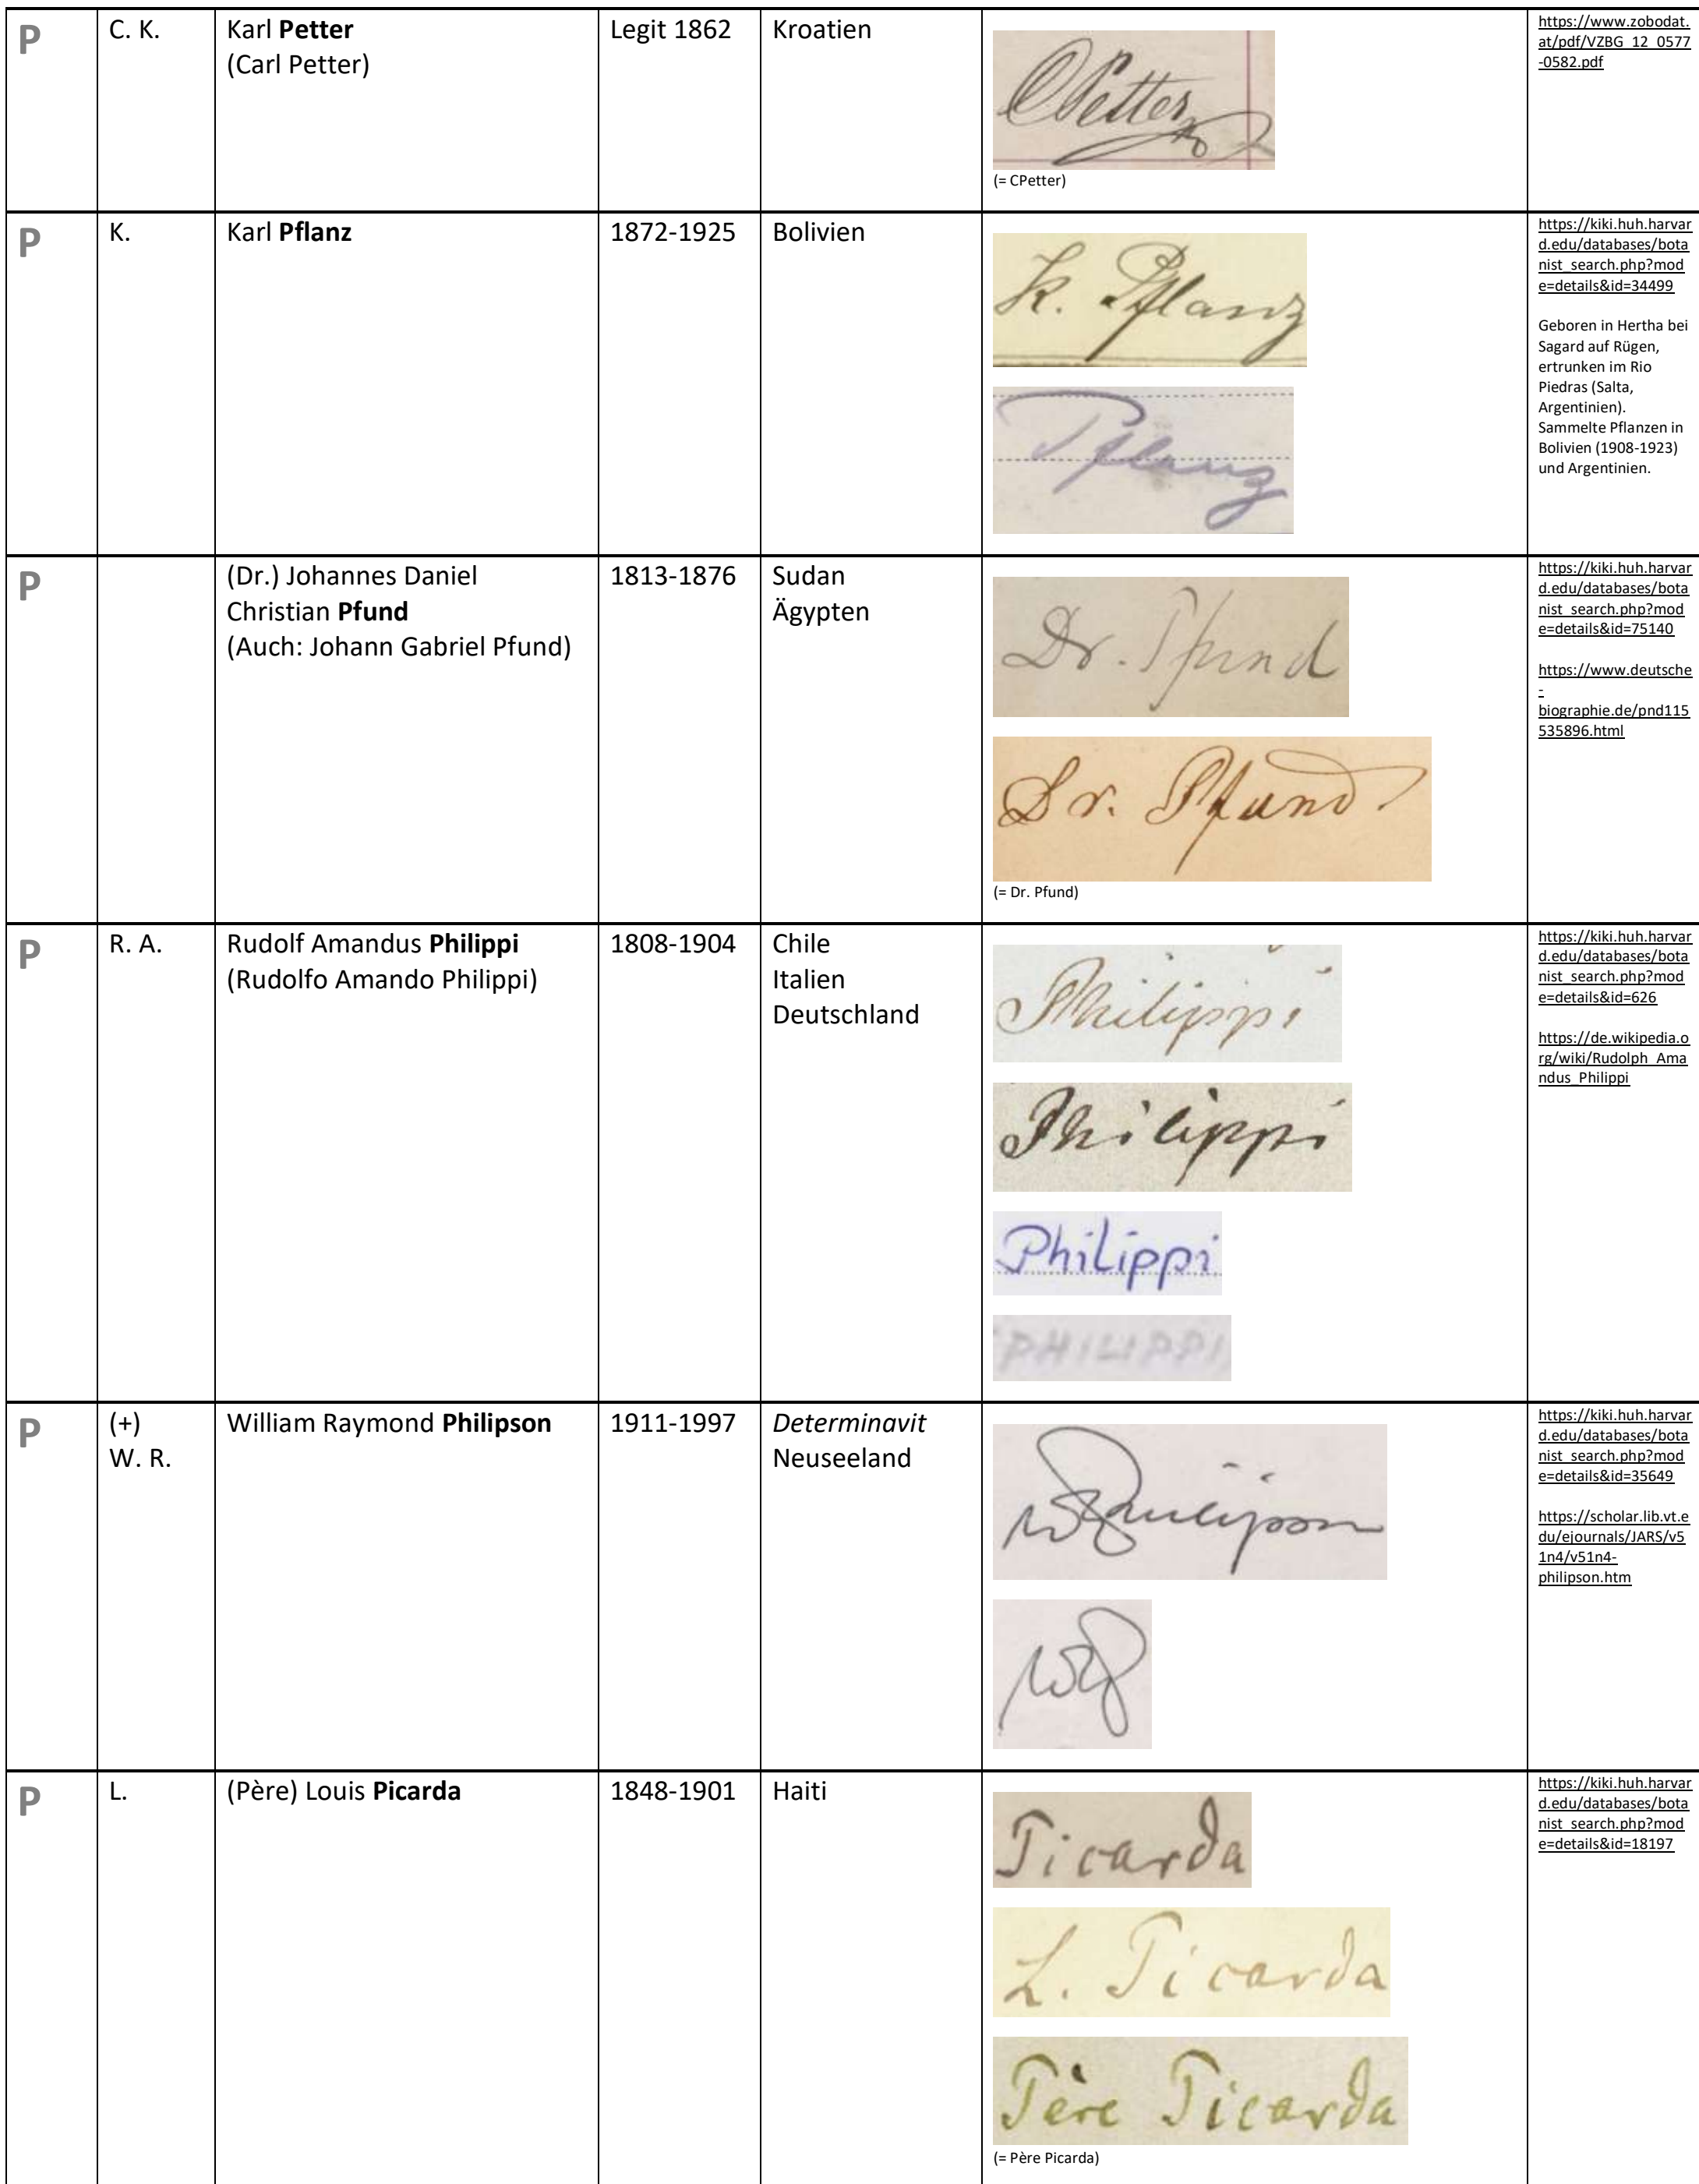 P
C. K.
Karl Petter
(Carl Petter)
Legit 1862
Kroatien
CPetter
(= CPetter)
https://www.zobodat.
at/pdf/VZBG_12_0577
-0582.pdf
P
K.
Karl Pflanz
1872-1925
Bolivien
K. Pflanz
Pflanz
https://kiki.huh.harvar
d.edu/databases/bota
nist_search.php?mod
e=details&id=34499
Geboren in Hertha bei
Sagard auf Rügen,
ertrunken im Rio
Piedras (Salta,
Argentinien).
Sammelte Pflanzen in
Bolivien (1908-1923)
und Argentinien.
P
(Dr.) Johannes Daniel
Christian Pfund
(Auch: Johann Gabriel Pfund)
1813-1876
Sudan
Ägypten
Dr. Pfund
Dr. Pfund
(= Dr. Pfund)
https://kiki.huh.harvar
d.edu/databases/bota
nist_search.php?mod
e=details&id=75140
https://www.deutsche
-
biographie.de/pnd115
535896.html
P
R. A.
Rudolf Amandus Philippi
(Rudolfo Amando Philippi)
1808-1904
Chile
Italien
Deutschland
Philippi
Philippi
Philippi
PHILIPPI
https://kiki.huh.harvar
d.edu/databases/bota
nist_search.php?mod
e=details&id=626
https://de.wikipedia.o
rg/wiki/Rudolph_Ama
ndus_Philippi
P
(+)
W. R.
William Raymond Philipson
1911-1997
Determinavit
Neuseeland
WRPhilipson
WRP
https://kiki.huh.harvar
d.edu/databases/bota
nist_search.php?mod
e=details&id=35649
https://scholar.lib.vt.e
du/ejournals/JARS/v5
1n4/v51n4-
philipson.htm
P
L.
(Père) Louis Picarda
1848-1901
Haiti
Picarda
L. Picarda
Père Picarda
(= Père Picarda)
https://kiki.huh.harvar
d.edu/databases/bota
nist_search.php?mod
e=details&id=18197